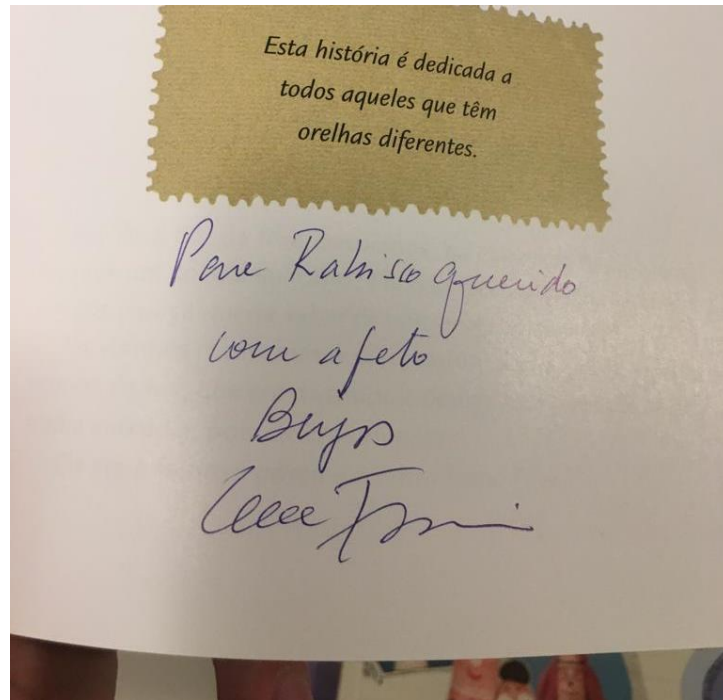 Esta história é dedicada a
todos aqueles que têm
orelhas diferentes.
Para Rabisco querido
com afeto
Beijos